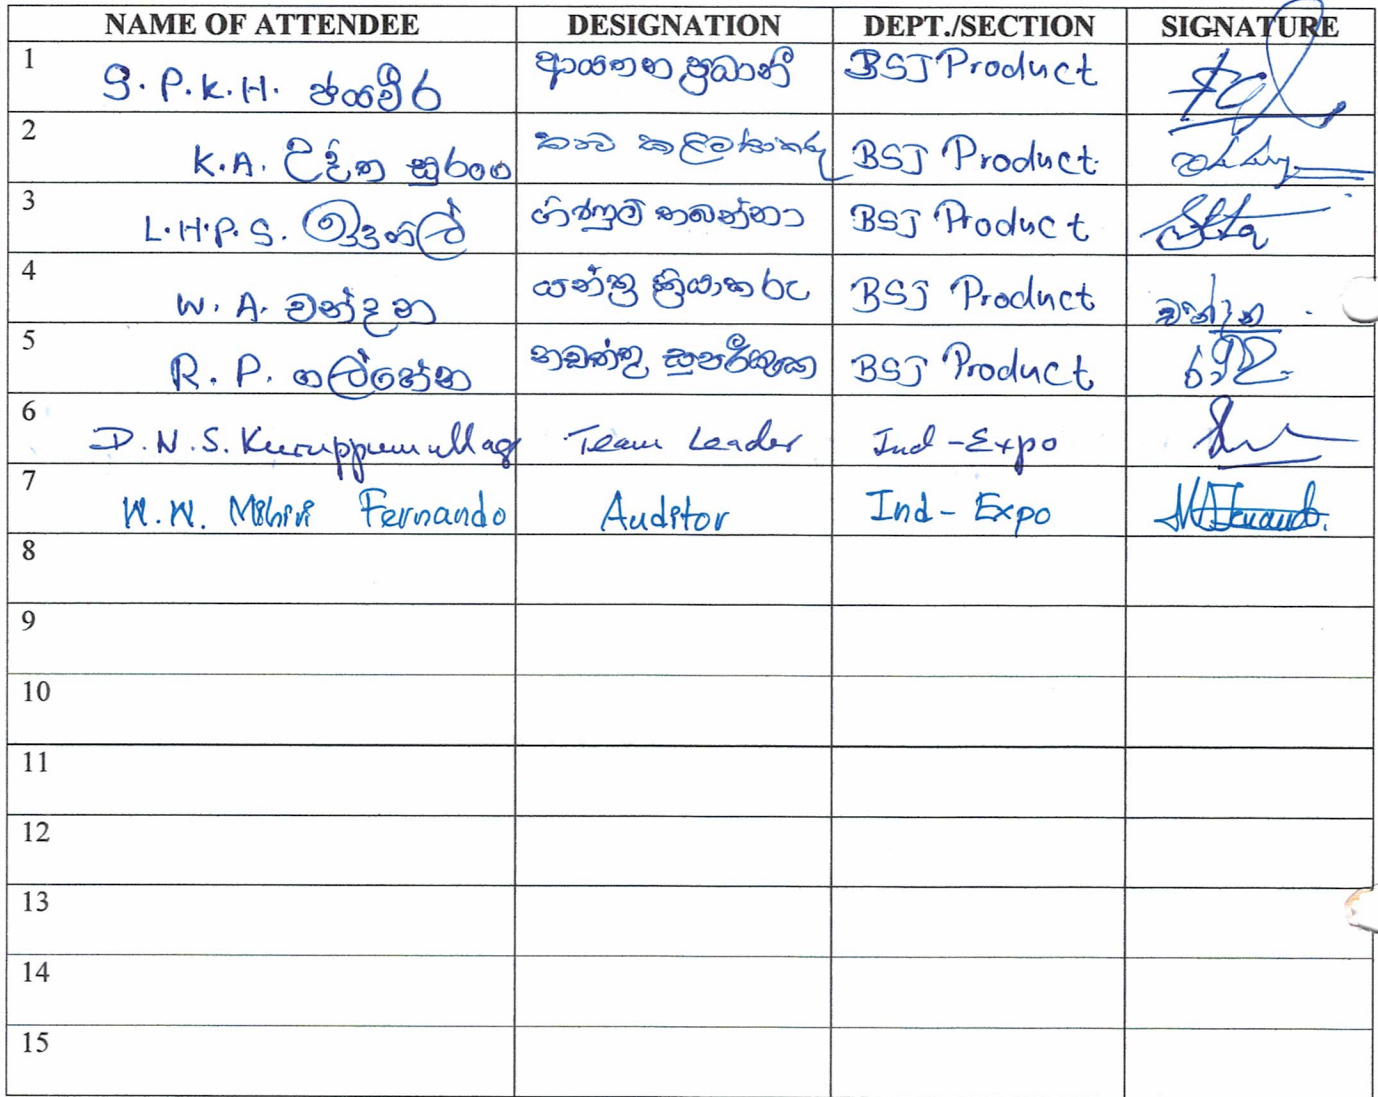 NAME OF ATTENDEE DESIGNATION DEPT./SECTION SIGNATURE
1 G. P. K. H. ජයවීර ආයතන ප්‍රධානී BSJ Product
2 K. A. උදිත සුරංග BSJ Product
3 L. H. P. S. ගිණුම් තබන්නා BSJ Product
4 W. A. චන්දන යන්ත්‍ර ක්‍රියාකරු BSJ Product චන්දන
5 R. P. ගල්හේන නඩත්තු සුපරීක්ෂක BSJ Product
6 D. N. S. Kuruppumullage Team Leader Ind - Expo
7 W. W. Mihiri Fernando Auditor Ind - Expo
8
9
10
11
12
13
14
15